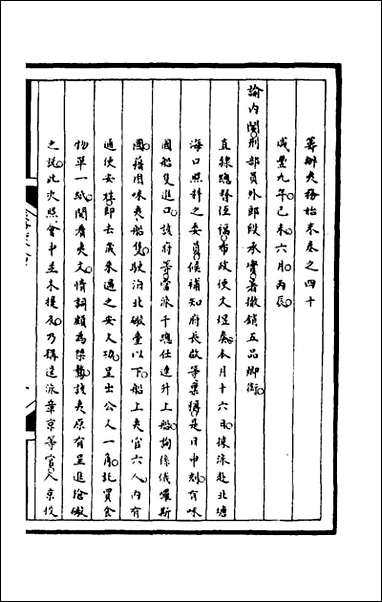 籌辦夷務始末卷之四十
咸豐九年己未六月丙辰
諭內閣刑部員外郎段承實著撤銷五品卿銜
直隸總督恆福布政使文煜奏本月十六日據派赴北塘
海口照料之委員候補知府長啟等稟稱是日申刻有咪
國船隻進口該府等當派千總任連升上船詢係俄羅斯
國藉用咪夷船隻駛泊北礮臺以下船上夷官六人內有
通使安樁即去歲來過之安文功呈出公文一角託買食
物單一紙閱看夷文情詞頗為桀驁該夷原有呈進槍礮
之說此次照會中並未提及乃稱送派章京等官入京從